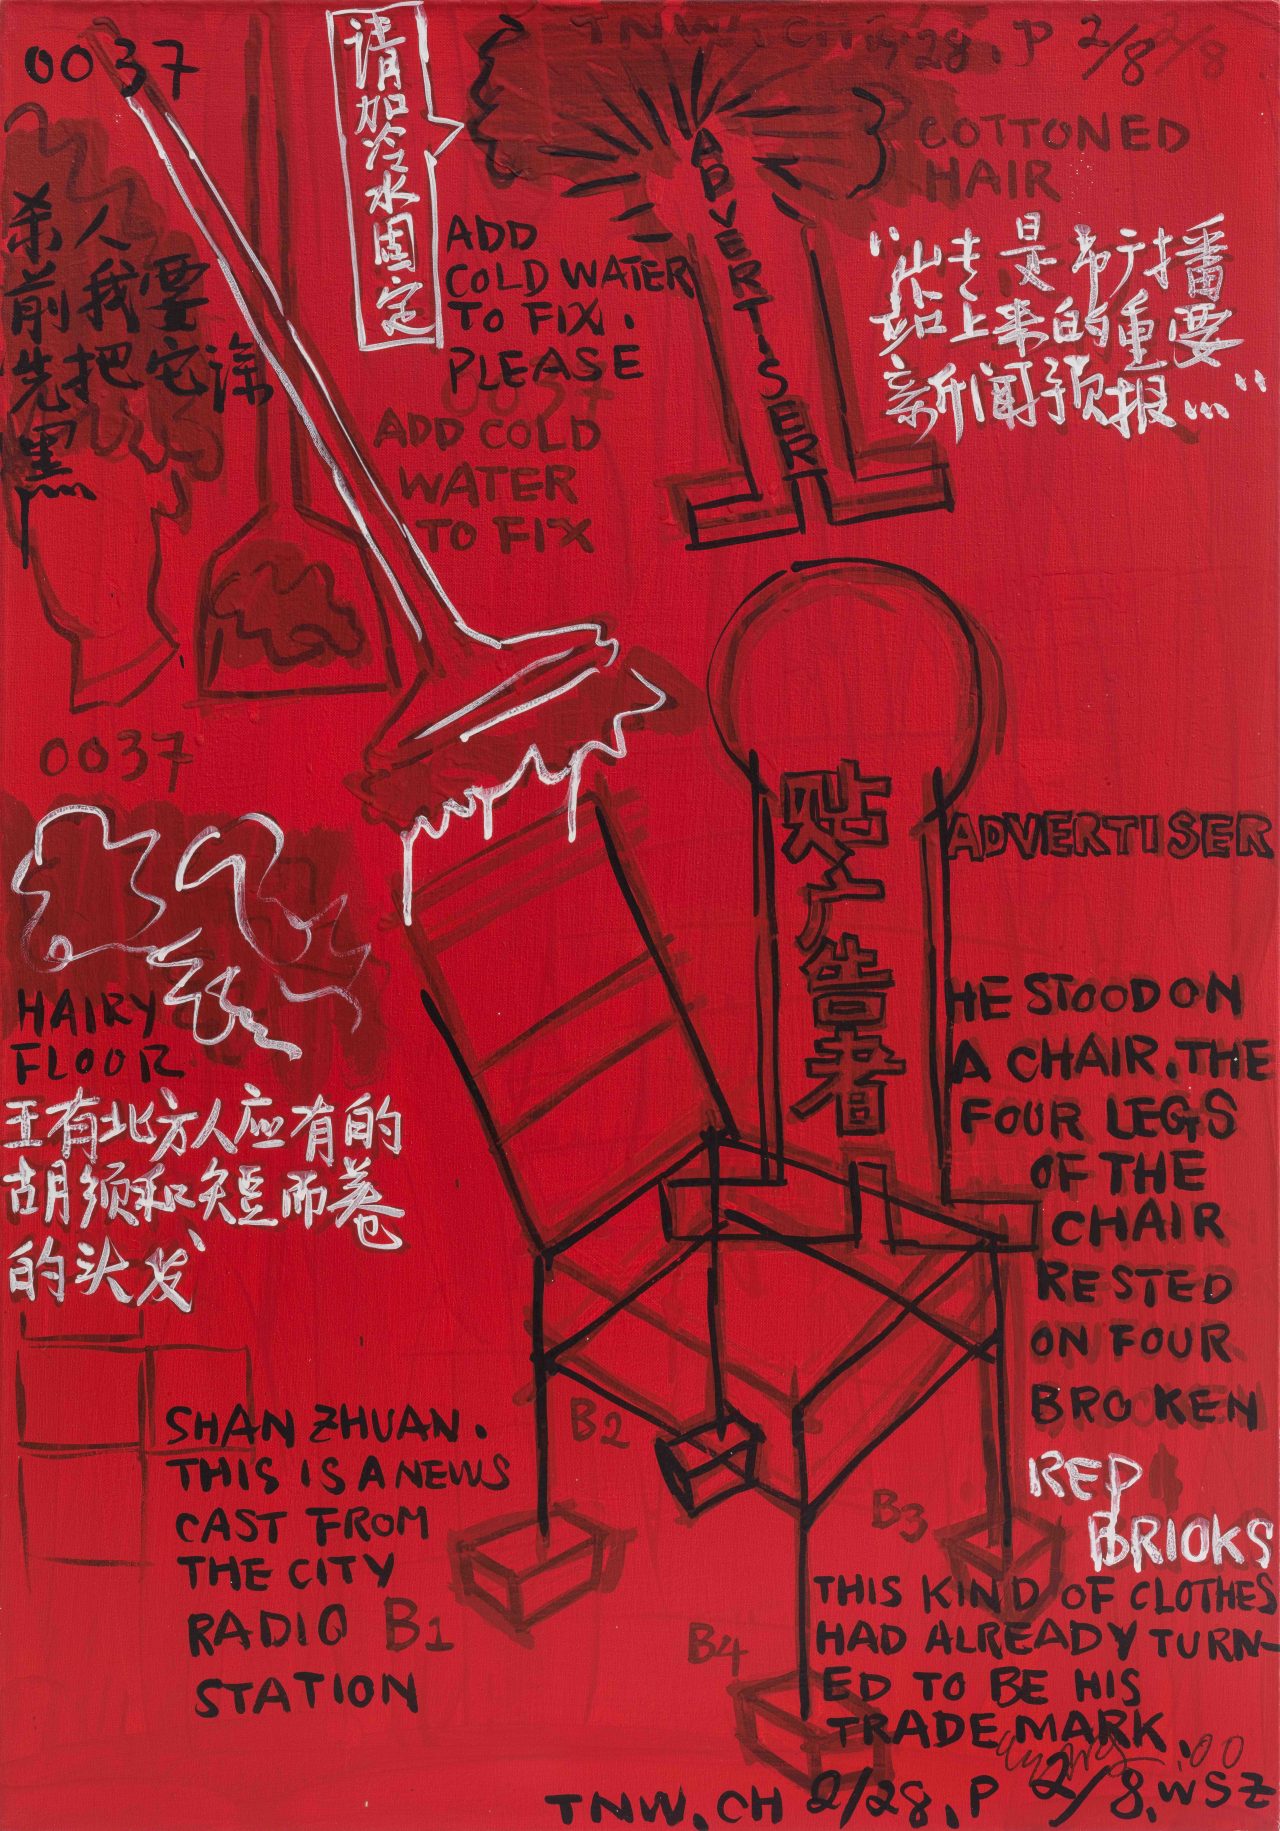 0037
请加冷水固定
TNW, CH 2/28, P 2/8
COTTONED
HAIR
ADVERTISER
ADD
COLD WATER
TO FIX.
PLEASE
0037
ADD COLD
WATER
TO FIX
杀人
前我要
先把它涂
黑
是市广播
站上来的重要
新闻预报…"
0037
HAIRY
FLOOR
王有北方人应有的
胡须和短而卷
的头发
贴广告者
ADVERTISER
HE STOOD ON
A CHAIR. THE
FOUR LEGS
OF THE
CHAIR
RESTED
ON FOUR
BROKEN
RED
BRICKS
SHAN ZHUAN.
THIS IS A NEWS
CAST FROM
THE CITY
RADIO
STATION
B1
B2
B3
B4
THIS KIND OF CLOTHES
HAD ALREADY TURN-
ED TO BE HIS
TRADE MARK.
00
TNW, CH 2/28, P 2/8, WSZ